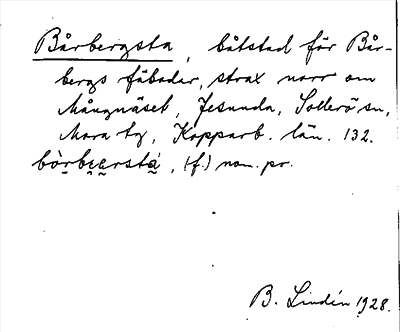 Bårbergsta, båtstad för Bår-
bergs fäbodar, strax norr om
Mångnäset, Gesunda, Sollerö sn,
Mora tg, Kopparb. län. 132.
bòrbęrstá, (f.) nom. pr.
B. Lindén 1928.